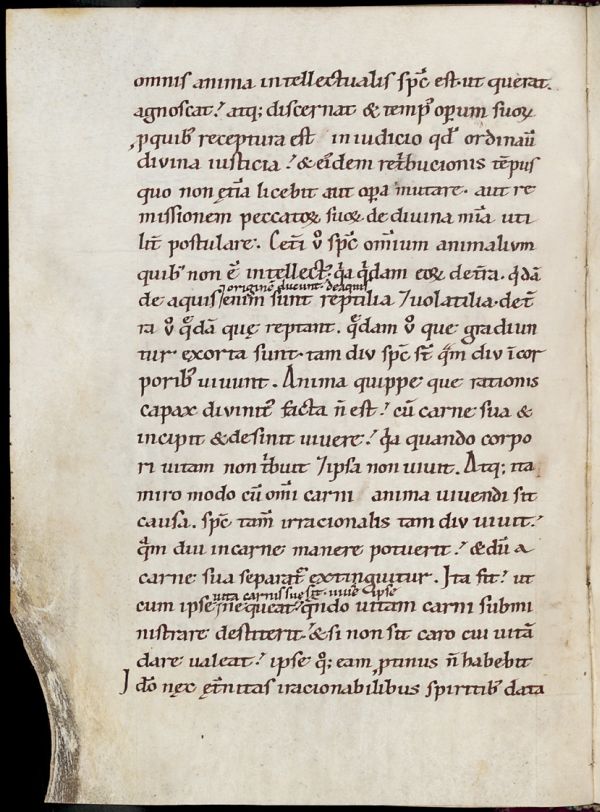 omnis anima intellectualis sp̄c est. ut querat.
agnoscat? atq; discernat & temp᷒ oꝑum suoꝝ
ꝓ quibꝰ receptura est in iudicio qd̄ ordinauit
diuina iusticia? & eidem retͥbucionis tēpus
quo non ęt̄na licebit aut oꝑa mutare. aut re
missionem peccatoꝝ suoꝝ de diuina mīa uti
lit̄ postulare. Cet̄i ꝟo sp̄c om̄ium animalium
quibꝰ non ē intellectꝰ. q̄a q̄dam eoꝝ de t̄ra. q̄dā
originē ducunt. de aquis
de aquis enim sunt reptilia ⁊ uolatilia. de t̄
ra ꝟo q̄dā quę reptant. q̄dam ꝟo que gradiun
tur exorta sunt. tam diu sp̄c st̄ q̄m diu ī cor
poribꝰ uiuunt. Anima quippe que rationis
capax diuinitꝰ facta n̄ est? cū carne sua &
incipit & desinit uiuere? q̄a quando corpo
ri uitam non tͥbuit ⁊ ipsa non uiuit. Atq; ita
miro modo cū om̄i carni anima uiuendi sit
causa. sp̄c tam̄ irracionalis tam diu uiuit?
q̄m diu in carne manere potuerit? & dū a
carne sua separat᷒ extinguitur. Ita fit? ut
uita carnis sue sit. uiuē ipse
cum ipse ne queat? qn̄do uitam carni submi
nistrare destiterit? & si non sit caro cui uitā
dare ualeat? ipse q̊; eam ꝓtinus n̄ habebit
Id̄o nęc ęt̄nitas iracionabilibus spiritibꝰ data